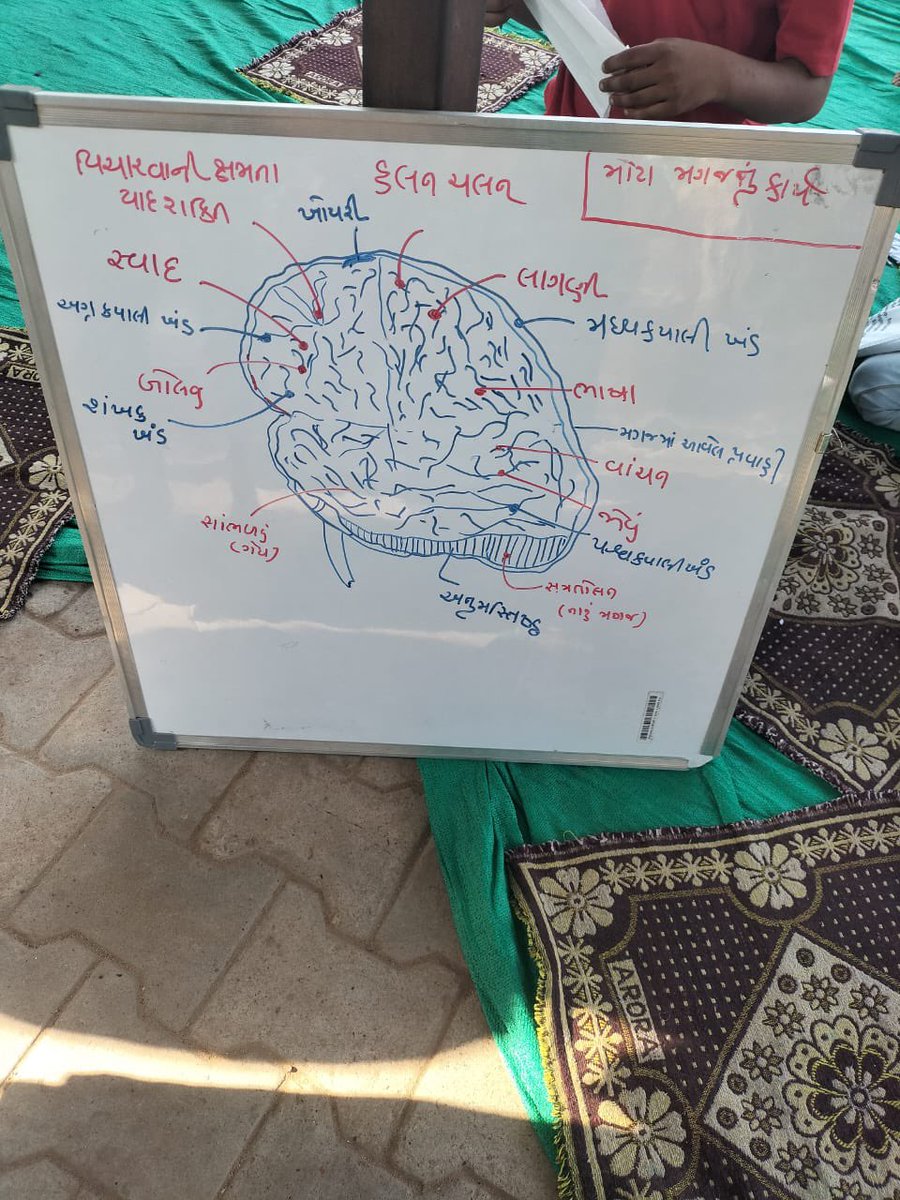 મોટા મગજનું કાર્ય
વિચારવાની ક્ષમતા
યાદ શક્તિ
હલન ચલન
ખોપરી
સ્વાદ
લાગણી
અગ્ર કપાલી ખંડ
મધ્યકપાલી ખંડ
બોલવુ
ભાષા
શંખક
ખંડ
મગજમાં આવેલ પ્રવાહી
વાંચન
સાંભળવું
જોવું
પશ્ચકપાલી ખંડ
અનુમસ્તિષ્ક
(નાનું મગજ)
ARORA